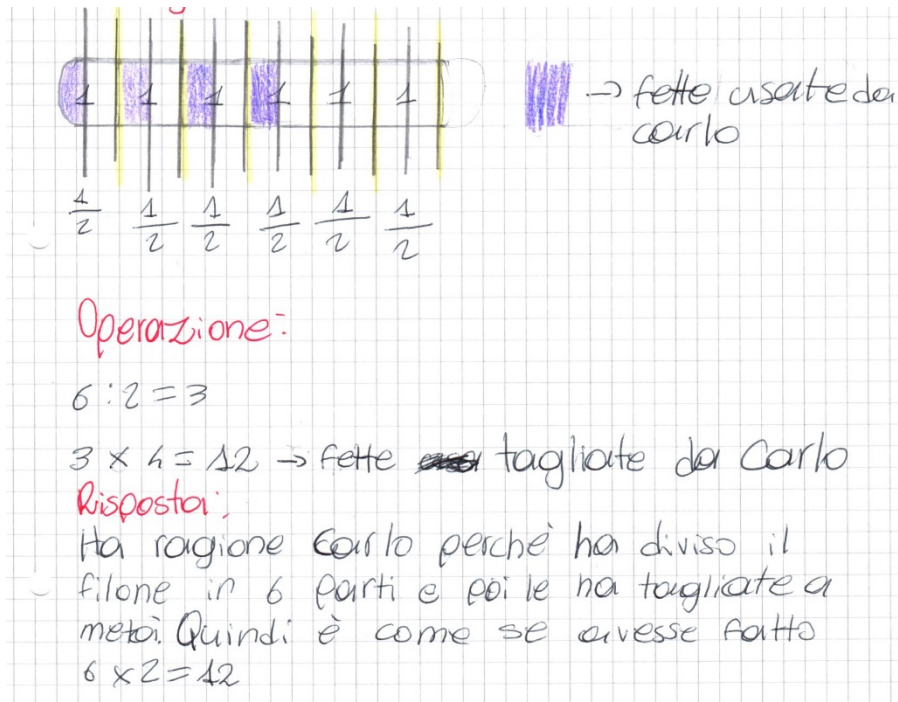 1 1 1 1 1 1
→ fette usate da
carlo
1/2 1/2 1/2 1/2 1/2 1/2
Operazione:
6:2=3
3 x 4 = 12 → fette tagliate da Carlo
Risposta:
Ha ragione Carlo perchè ha diviso il
filone in 6 parti e poi le ha tagliate a
metà. Quindi è come se avesse fatto
6 x 2 = 12